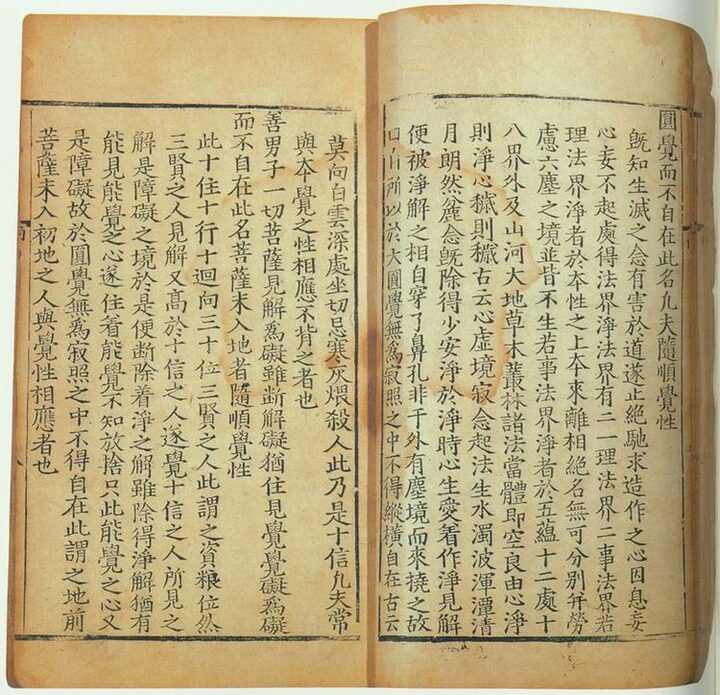 圓覺而不自在此名凡夫隨順覺性
旣知生滅之念有害於道遂止絶馳求造作之心因息妄
心妄不起處得法界淨法界有二一理法界二事法界若
理法界淨者於本性之上本來離相絶名無可分別幷勞
慮六塵之境並皆不生若事法界淨者於五蘊十二處十
八界外及山河大地草木叢林諸法當體即空良由心淨
則淨心穢則穢古云心虛境寂念起法生水濁波渾潭清
月朗然麁念旣除得少安淨於淨時心生愛着作淨見解
便被淨解之相自穿了鼻孔非干外有塵境而來撓之故
口山所以於大圓覺無爲寂照之中不得縱橫自在古云
莫向白雲深處坐切忌寒灰煨殺人此乃是十信凡夫常
與本覺之性相應不背之者也
善男子一切菩薩見解爲礙雖断解礙猶住見覺覺礙爲礙
而不自在此名菩薩未入地者隨順覺性
此十住十行十迴向三十位三賢之人此謂之資粮位然
三賢之人見解又高於十信之人遂覺十信之人所見之
解是障礙之境於是便断除着淨之解雖除得淨解猶有
能見能覺之心遂住着能覺不知放捨只此能覺之心又
是障礙故於圓覺無爲寂照之中不得自在此謂之地前
菩薩未入初地之人與覺性相應者也